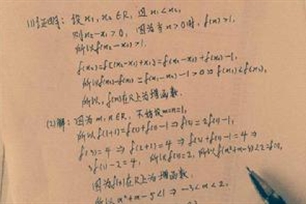 (1)证明：设x₁,x₂∈R，且x₁<x₂,
则x₂-x₁>0，因为当x>0时，f(x)>1,
所以f(x₂-x₁)>1.
f(x₂)=f[(x₂-x₁)+x₁]=f(x₂-x₁)+f(x₁)-1,
所以f(x₂)-f(x₁)=f(x₂-x₁)-1>0⇒f(x₁)<f(x₂),
所以，f(x)在R上为增函数.
(2)解：因为m,n∈R，不妨设m=n=1,
所以f(1+1)=f(1)+f(1)-1⇒f(2)=2f(1)-1,
f(3)=4⇒f(2+1)=4⇒f(2)+f(1)-1=4⇒
3f(1)-2=4，所以f(1)=2，所以f(a²+a-5)<2=f(1),
因为f(x)在R上为增函数,
所以a²+a-5<1⇒-3<a<2.